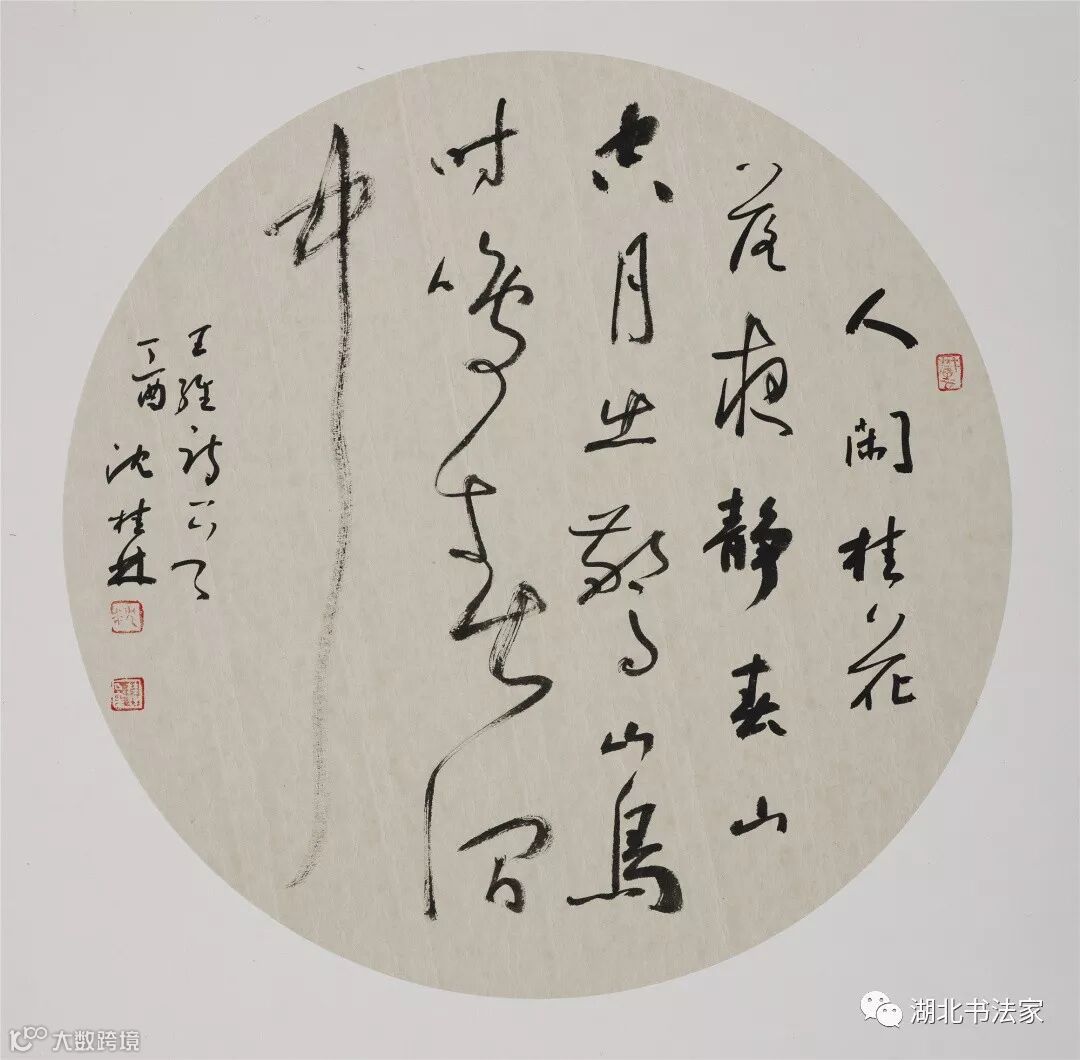 人闲桂花
落夜静春山
空月出驚山鳥
时鸣春涧
中
王维诗
丁酉沈桂林
湖北书法家
大数跨境